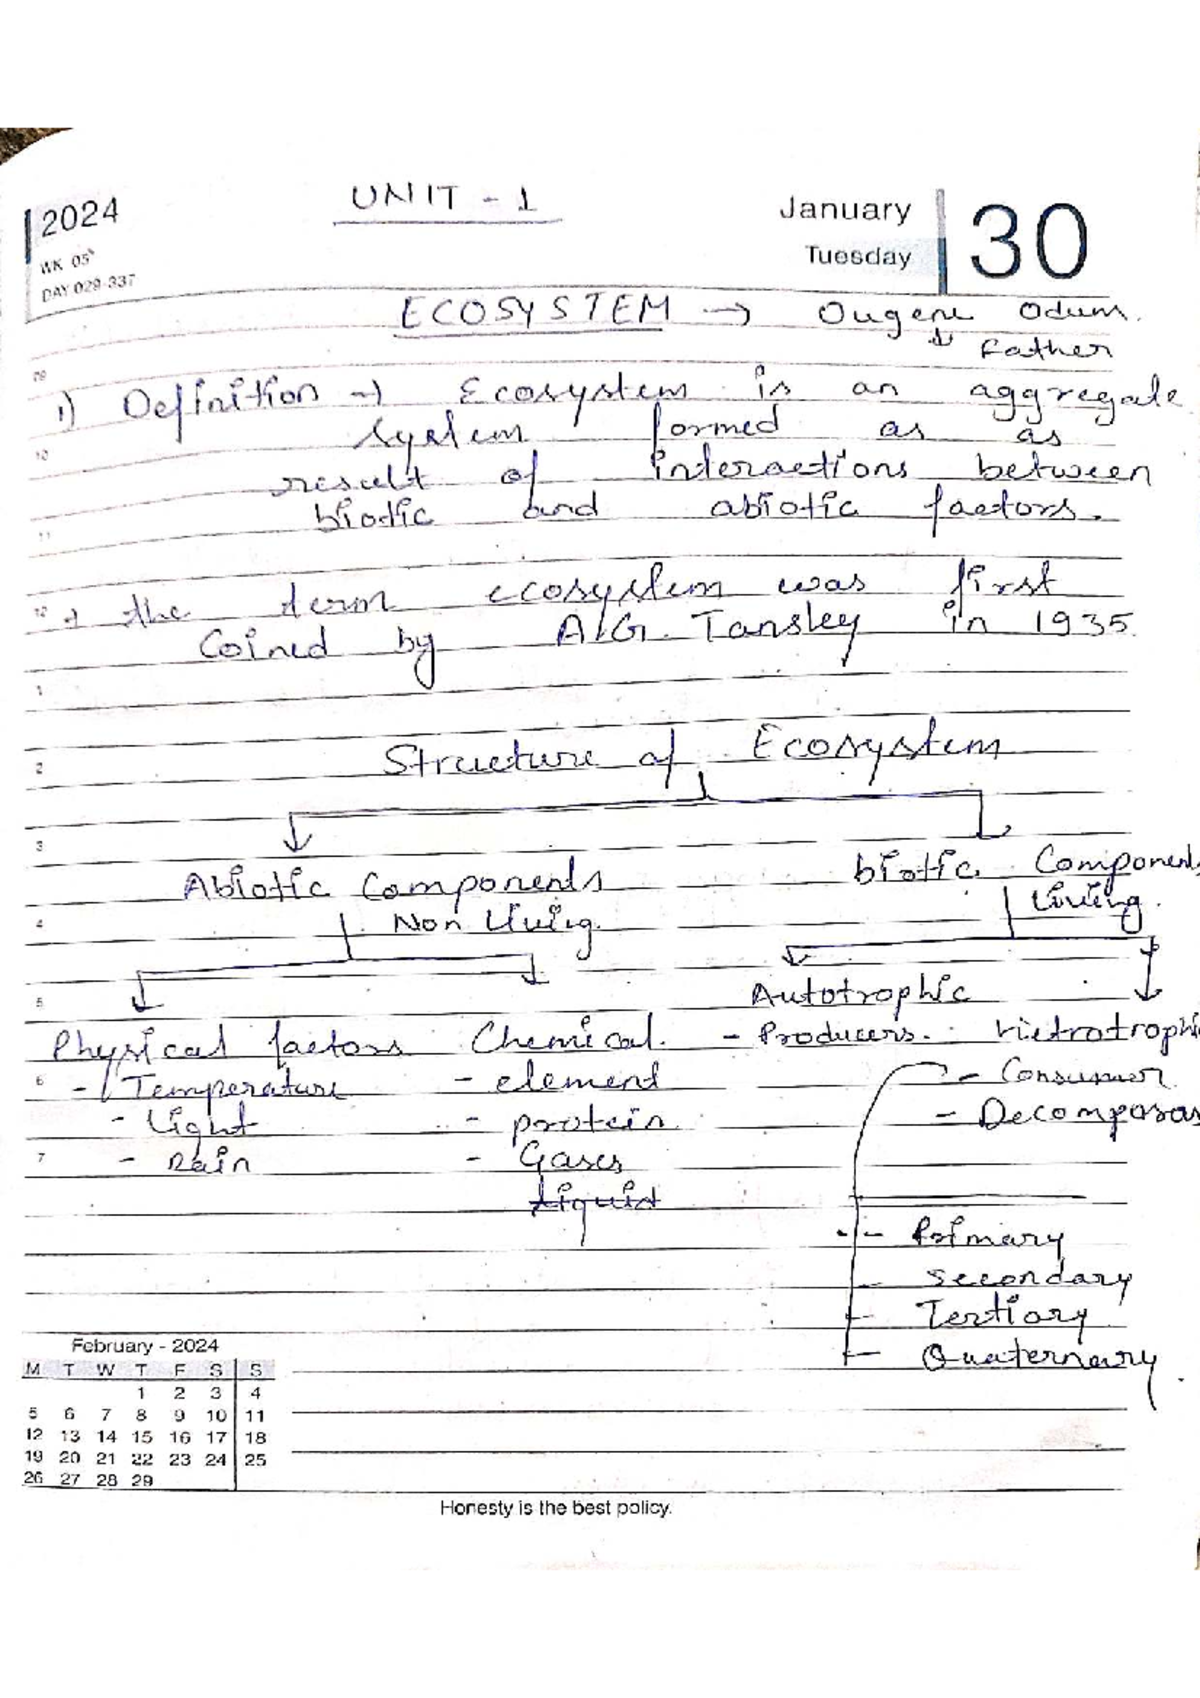 2024
UNIT - 1
January
30
WK 05
Tuesday
DAY 029-337
ECOSYSTEM → Ougene Odum.
↓ Father
09
1) Definition → Ecosystem is an aggregate
10
system formed as as
result of interactions between
11
biotic and abiotic factors.
12
→ the term ecosystem was first
Coined by A.G. Tansley in 1935.
1
2
Structure of Ecosystem
3
Abiotic Components biotic Components
4
Non Living. Living.
5
Autotrophic
Physical factors Chemical. - Producers.
6
- Temperature - element - Consumer
- Light - protein - Decomposas
7
- Rain - Gases
Liquid
- Primary
- Secondary
- Tertiary
- Quaternary
February - 2024
M T W T F S S
1 2 3 4
5 6 7 8 9 10 11
12 13 14 15 16 17 18
19 20 21 22 23 24 25
26 27 28 29
Honesty is the best policy.